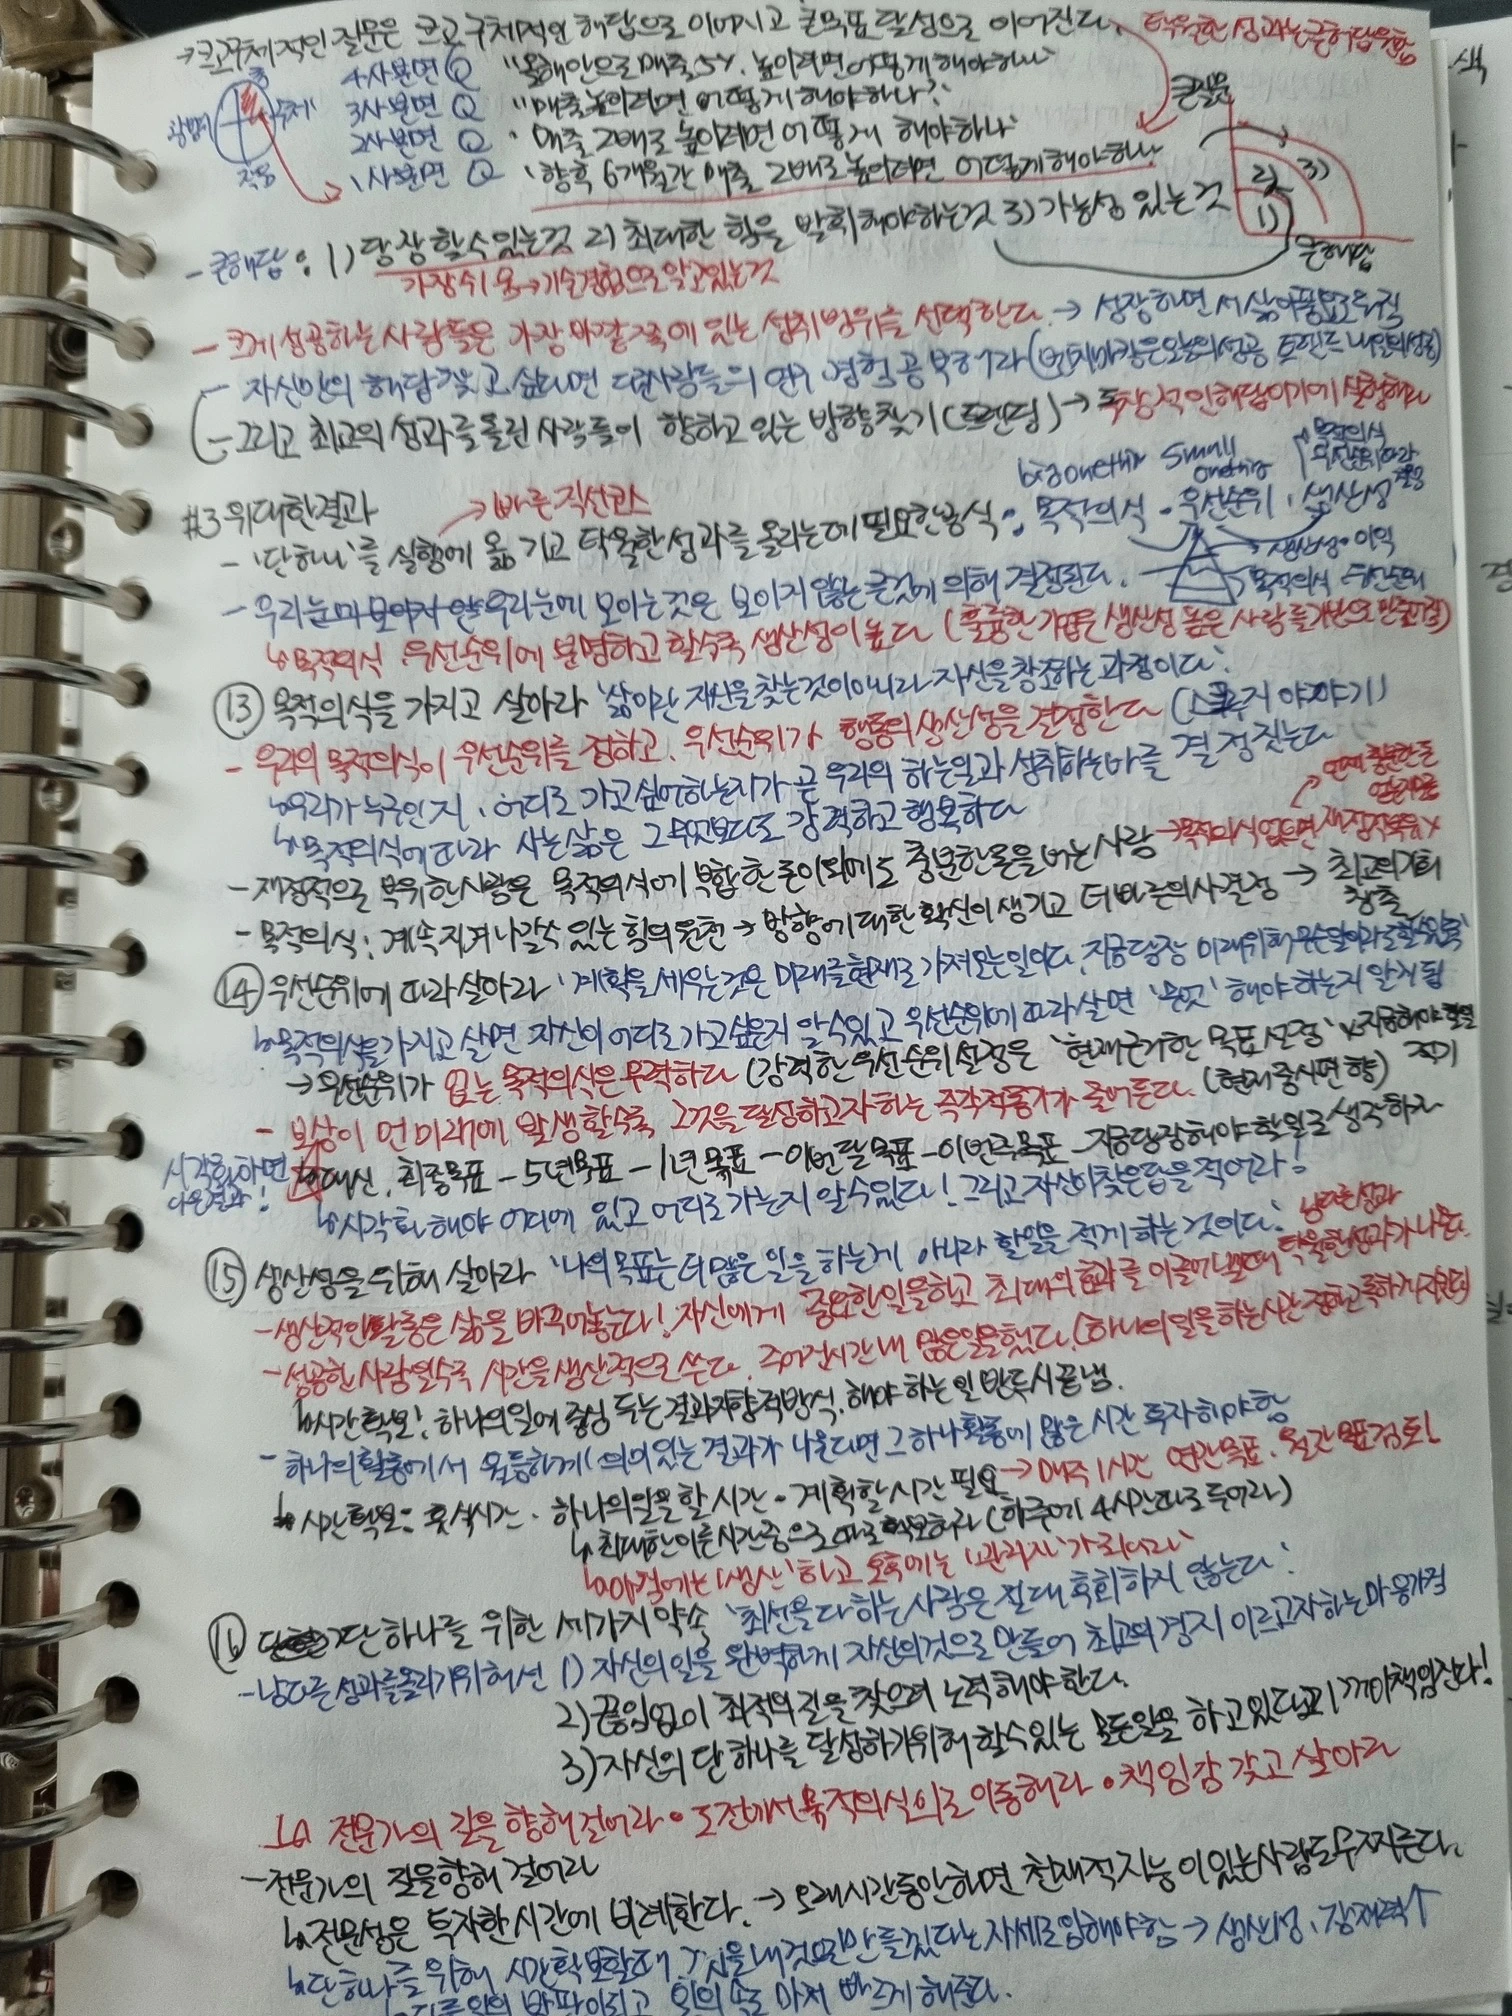 → 크고 구체적인 질문은 크고 구체적인 해답으로 이어지고 큰목표 달성으로 이어진다. 탁월한 성과는 큰해답을
4사분면 Q "올해안으로 매출5% 높이려면 어떻게 해야하나"
3사분면 Q "매출높이려면 어떻게 해야하나?"
2사분면 Q "매출 2배로 높이려면 어떻게 해야하나"
1사분면 Q "향후 6개월간 매출 2배로 높이려면 어떻게해야하나
큰질문
1) 2) 3)
큰해답
- 큰해답 : 1) 당장 할수있는것 2) 최대한 힘을 발휘해야하는것 3) 가능성 있는것
가장쉬움→기술경험으로 알고있는것
- 크게 성공하는 사람들은 가장 바깥쪽에 있는 성취범위를 선택한다. → 성장하면서 삶이풍요로워짐
- 자신만의 해답찾고 싶다면 다른사람들의 연구 경험 공부해라 (벤치마킹은오늘의성공 트렌드 내일의성공)
- 그리고 최고의 성과를 올린 사람들이 향하고 있는 방향찾기 (트렌딩) → 독창적인해답이기에 실행해라
big onething small onething
목적의식 우선순위따라
#3 위대한결과 → 빠른 직선코스
- '단하나'를 실행에 옮기고 탁월한성과를 올리는데 필요한방식 : 목적의식 · 우선순위 · 생산성
생산성·이익
목적의식 우선순위
- 우리눈에 보이는것은 보이지 않는 큰것에 의해 결정된다.
↳ 목적의식 우선순위에 분명하고 할수록 생산성이 높다 (훌륭한 기업은 생산성 높은 사람들기반으로 만들어짐)
⑬ 목적의식을 가지고 살아라 '삶이란 자신을 찾는것이아니라 자신을창조하는 과정이다'
- 우리의 목적의식이 우선순위를 정하고, 우선순위가 행동의 생산성을 결정한다 (스쿠루지 이야기)
↳ 우리가 누구인지, 어디로 가고싶어하는지가 곧 우리의 하는일과 성취하는바를 결정짓는다
↳ 목적의식에따라 사는삶은 그무엇보다도 강력하고 행복하다
- 재정적으로 부유한사람은 목적의식에 부합한돈이외에도 충분한돈을 버는사람 → 목적의식없으면 재정적부유X
- 목적의식 : 계속 지켜나갈수 있는 힘의원천 → 방향에대한 확신이 생기고 더빠른의사결정 → 최고의기회 창출
⑭ 우선순위에 따라살아라 '계획을 세우는것은 미래를현재로 가져오는일이다. 지금당장 미래위해무슨일이라도할수있음'
↳ 목적의식을가지고 살면 자신이 어디로 가고싶은지 알수있고 우선순위에 따라살면 '무엇' 해야 하는지 알게됨
→ 우선순위가 없는 목적의식은 무력하다 (강력한우선순위설정은 '현재근거한 목표설정' 지금해야할일 적기
- 보상이 먼 미래에 발생할수록 그것을 달성하고자하는 즉각적동기가 줄어든다. (현재중시편향)
시각화하면 다른결과! 대신, 최종목표 - 5년목표 - 1년목표 - 이번달목표 - 이번주목표 - 지금당장해야할일로 생각하자
↳ 시각화해야 어디에 있고 어디로가는지 알수있다! 그리고 자신이찾은답을 적어라!
⑮ 생산성을 위해 살아라 '나의목표는 더많은 일을 하는게 아니라 할일을 적게 하는것이다.'
- 생산적인활동은 삶을 바꾸어놓는다! 자신에게 중요한일을하고 최대의 효과를 이끌어낼때 남다른성과 탁월한성과가나온다.
- 성공한사람일수록 시간을생산적으로 쓴다. 주어진시간내 많은일을했다.
↳ 시간확보! 하나의일에중심 두는 결과지향적방식. 해야하는일 반드시끝냄.
- 하나의활동에서 월등하게 의미있는 결과가 나온다면 그하나활동에 많은 시간 투자해야함
↳ 시간확보 : 휴식시간 · 하나의일을할시간 · 계획할시간 필요 → 매주 1시간 연간목표 · 월간목표검토!
↳ 최대한이른시간중으로 따로 확보하라 (하루에 4시간따로두어라)
↳ 아침에는 '생산'하고 오후에는 '관리자'가되어라
⑯ 단하나를 위한 세가지약속 '최선을다하는사람은 절대 후회하지 않는다'
- 남다른성과를올리기위해선 1) 자신의일을 완벽하게 자신의것으로 만들어 최고의경지 이르고자하는마음가짐
2) 끊임없이 최적의길을 찾으려 노력해야한다.
3) 자신의 단하나를 달성하기위해 할수있는 모든일을 하고있다고 책임진다!
↳ 전문가의 길을 향해걸어라 · 도전에서목적의식의로 이동해라 · 책임감 갖고 살아라
- 전문가의 길을향해 걸어라
↳ 전문성은 투자한시간에 비례한다. → 오래시간동안하면 천재적지능이있는사람도무찌른다.
↳ 단하나를위해 시간확보할때 내것으로만들겠다는 자세로임해야함 → 생산성, 잠재력↑